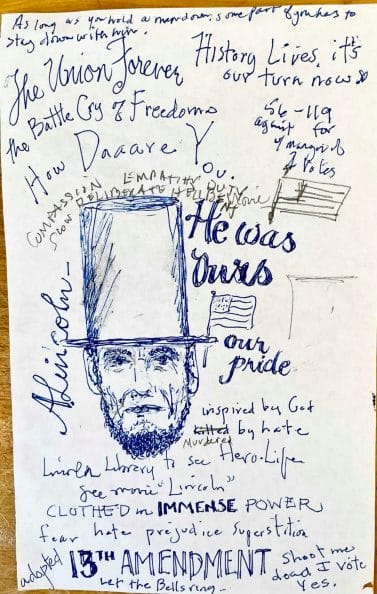 As long as you hold a man down, some part of you has to
stay down with him.
The Union Forever
History Lives, it's
our turn now so
the Battle Cry of Freedom
56-119
against for
margin of
Votes
How Daaare You.
COMPASSION EMPATHY DUTY
SLOW DELIBERATE HELLBENT
movie
He was
Ours
A Lincoln—
our
pride
inspired by God
killed by hate
Murdered
Lincoln Library to see Hero-Life
see movie "Lincoln"
CLOTHED in IMMENSE POWER
fear hate prejudice Superstition
adopted 13TH AMENDMENT
Shoot me
dead I vote
Yes.
Let the Bells ring...